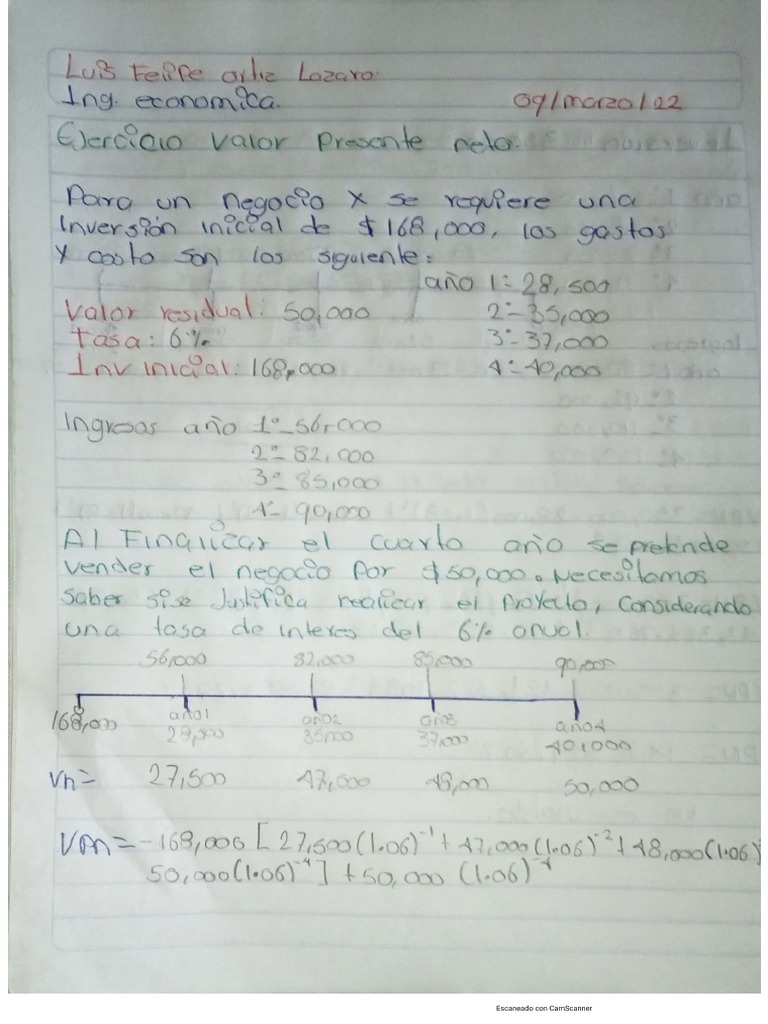 Luis Felipe Ortiz Lazaro.
Ing. economica. 09/marzo/22
Ejercicio Valor Presente neto.
Para un negocio x se requiere una
inversión inicial de $168,000, los gastos
y costo son los siguiente:
año 1º= 28,500
Valor residual: 50,000 2º=35,000
tasa: 6% 3º-37,000
Inv inicial: 168,000 4º-40,000
Ingresos año 1º-56,000
2º= 82,000
3º= 85,000
4º- 90,000
Al Finalizar el cuarto año se pretende
vender el negocio por $50,000. Necesitamos
saber si se Justifica realizar el Proyecto, Considerando
una tasa de interes del 6% anual.
56,000 82,000 85,000 90,000
168,000 año1 año2 año3 año4
28,500 35,000 37,000 40,000
Vn= 27,500 47,000 48,000 50,000
VPN=-168,000 [27,500(1.06)⁻¹+47,000(1.06)⁻²+48,000(1.06)
50,000(1.06)⁻⁴]+50,000 (1.06)⁻⁴
Escaneado con CamScanner